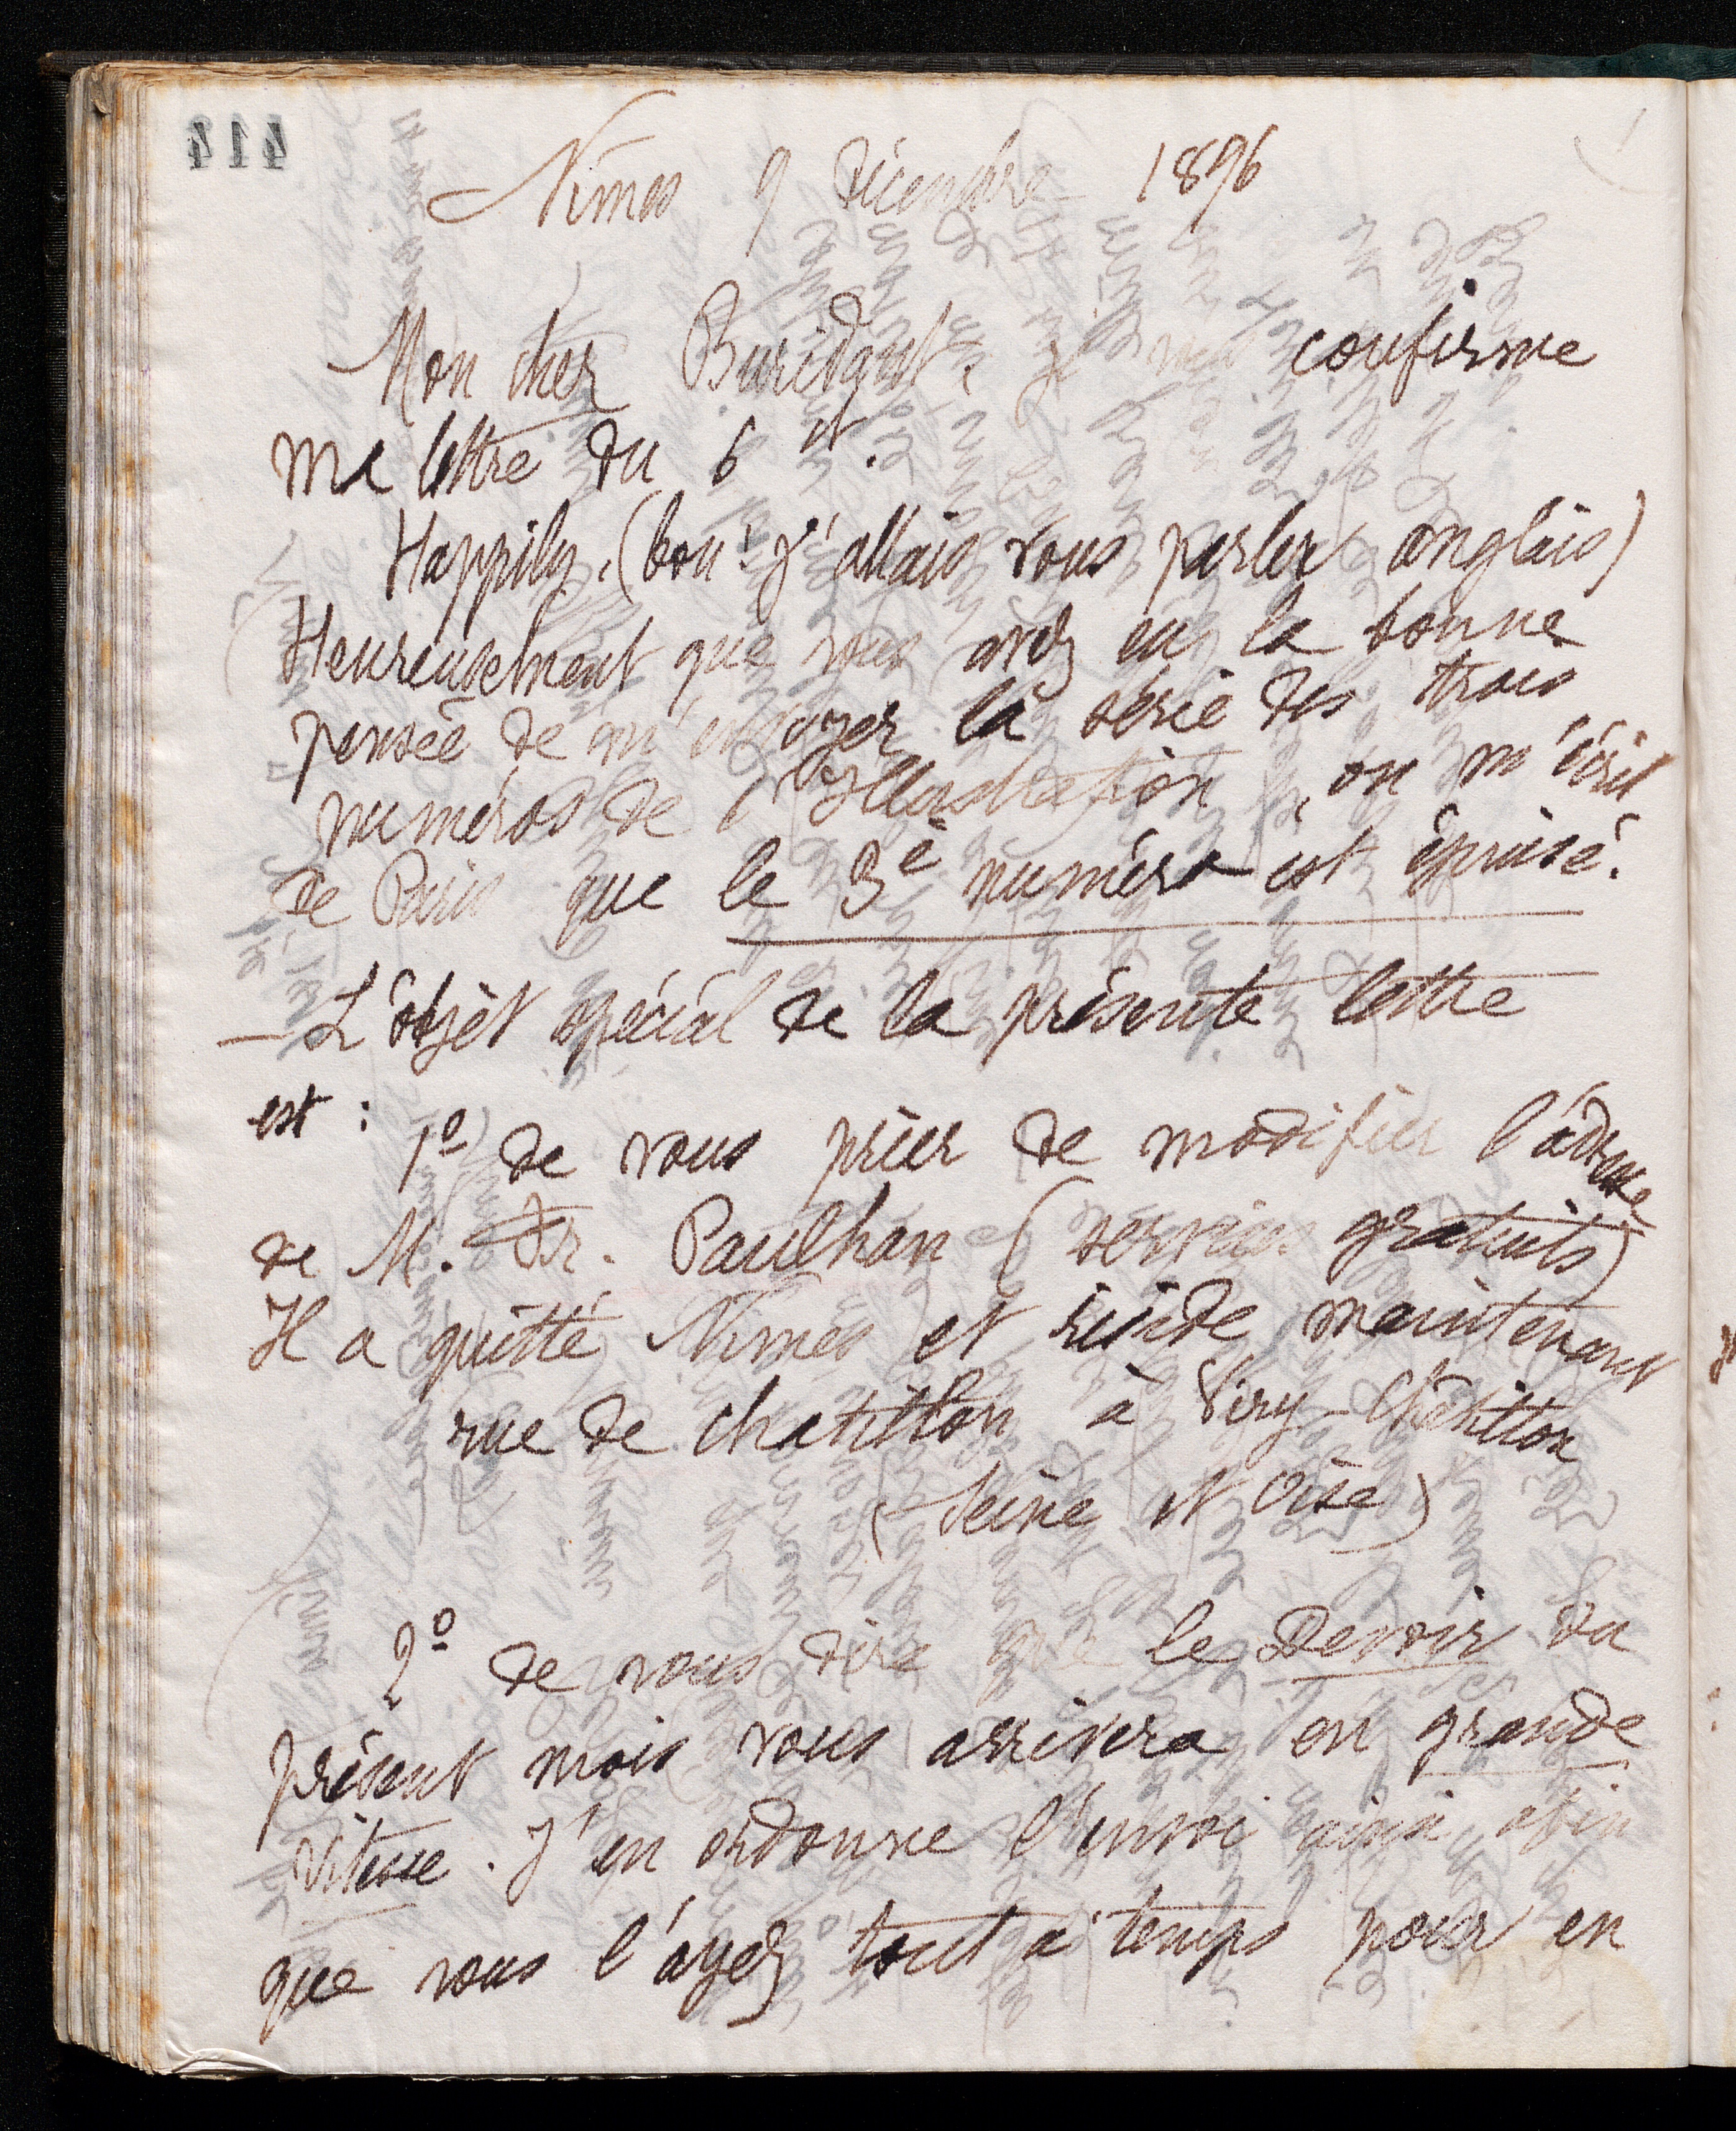 414
Nîmes 9 Décembre 1896
Mon cher Buridant, je vous confirme
ma lettre du 6 ct.
Happily, (bon! j'allais vous parler anglais)
Heureusement que vous avez eu la bonne
pensée de m'envoyer la série des trois
numéros de l'Illustration, on m'écrit
de Paris que le 3e numéro est épuisé.
— L'objet spécial de la présente lettre
est :
1º de vous prier de modifier l'adresse
de M. Fr. Paulhan (services gratuits)
Il a quitté Nîmes et réside maintenant
rue de Chatillon à Viry-Châtillon
(Seine et Oise)
2º de vous dire que le Devoir du
présent mois vous arrivera en grande
vitesse. J'en ordonne l'envoi ainsi afin
que vous l'ayez tout à temps pour en